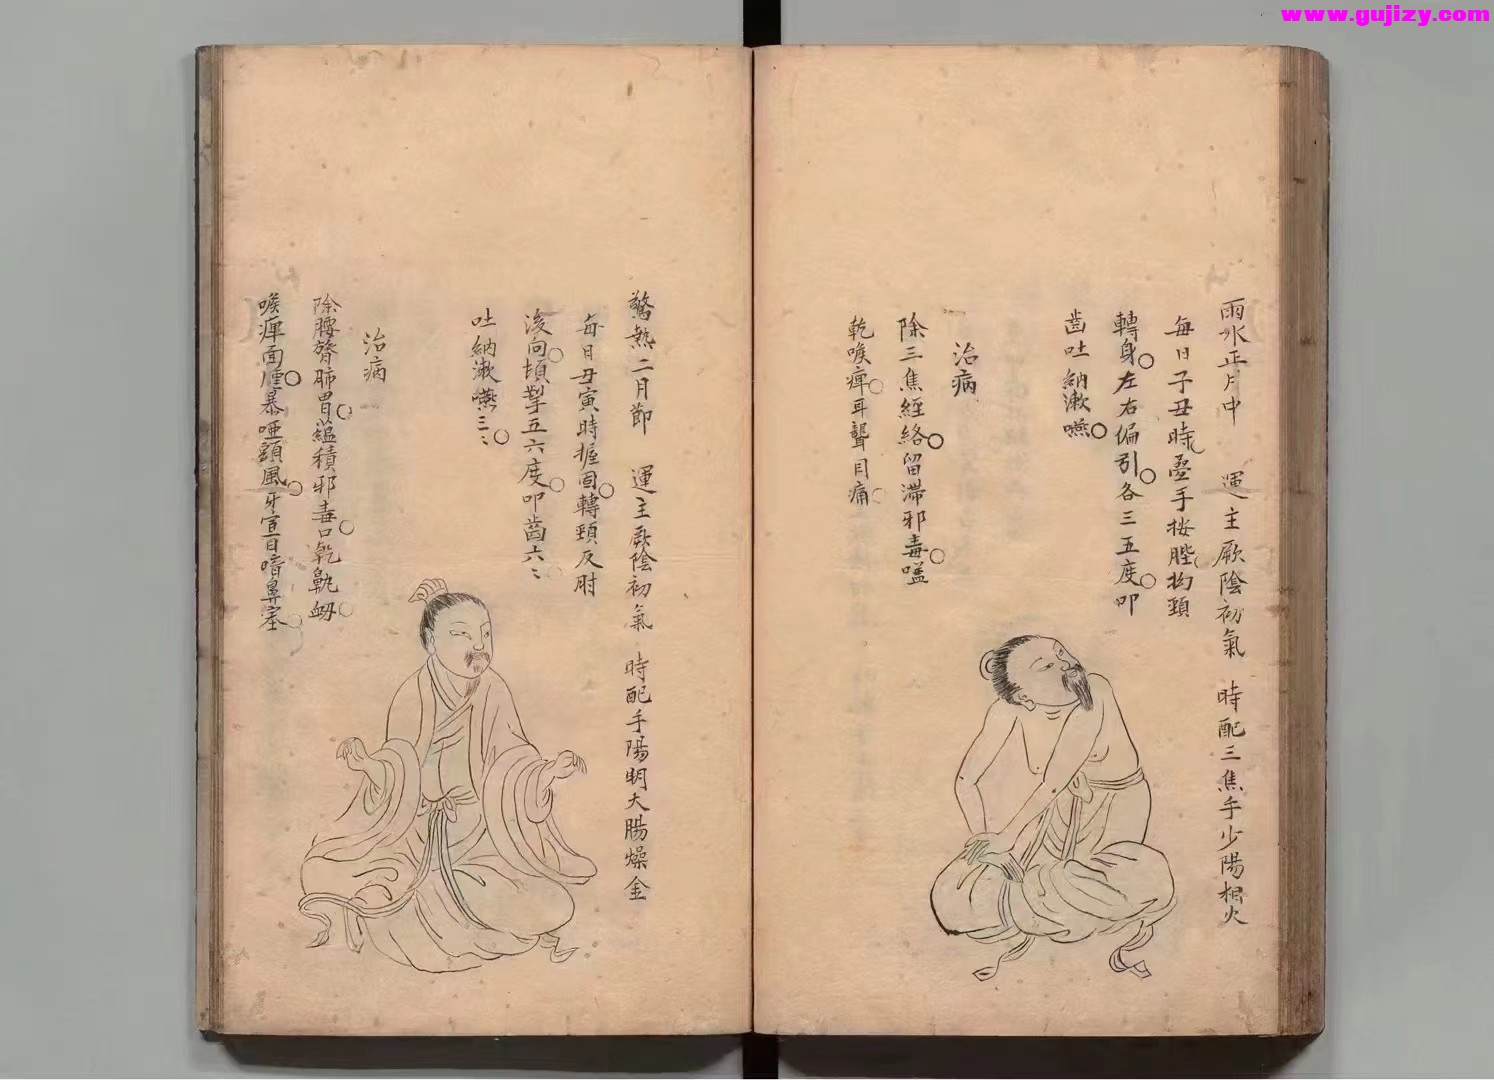 www.gujizy.com
雨水正月中 運主厥陰初氣 時配三焦手少陽相火
每日子丑時疊手按䏶拗頸
轉身左右偏引各三五度叩
齒吐納漱嚥
治病
除三焦經絡留滯邪毒嗌
乾喉痺耳聾目痛
驚熱二月節 運主厥陰初氣 時配手陽明大腸燥金
每日丑寅時握固轉頸反肘
後向頓掣五六度叩齒六〻
吐納漱嚥三〻
治病
除腰膂肺胃蘊積邪毒口乾鼽衂
喉痺面腫暴啞頭風牙宣目暗鼻塞